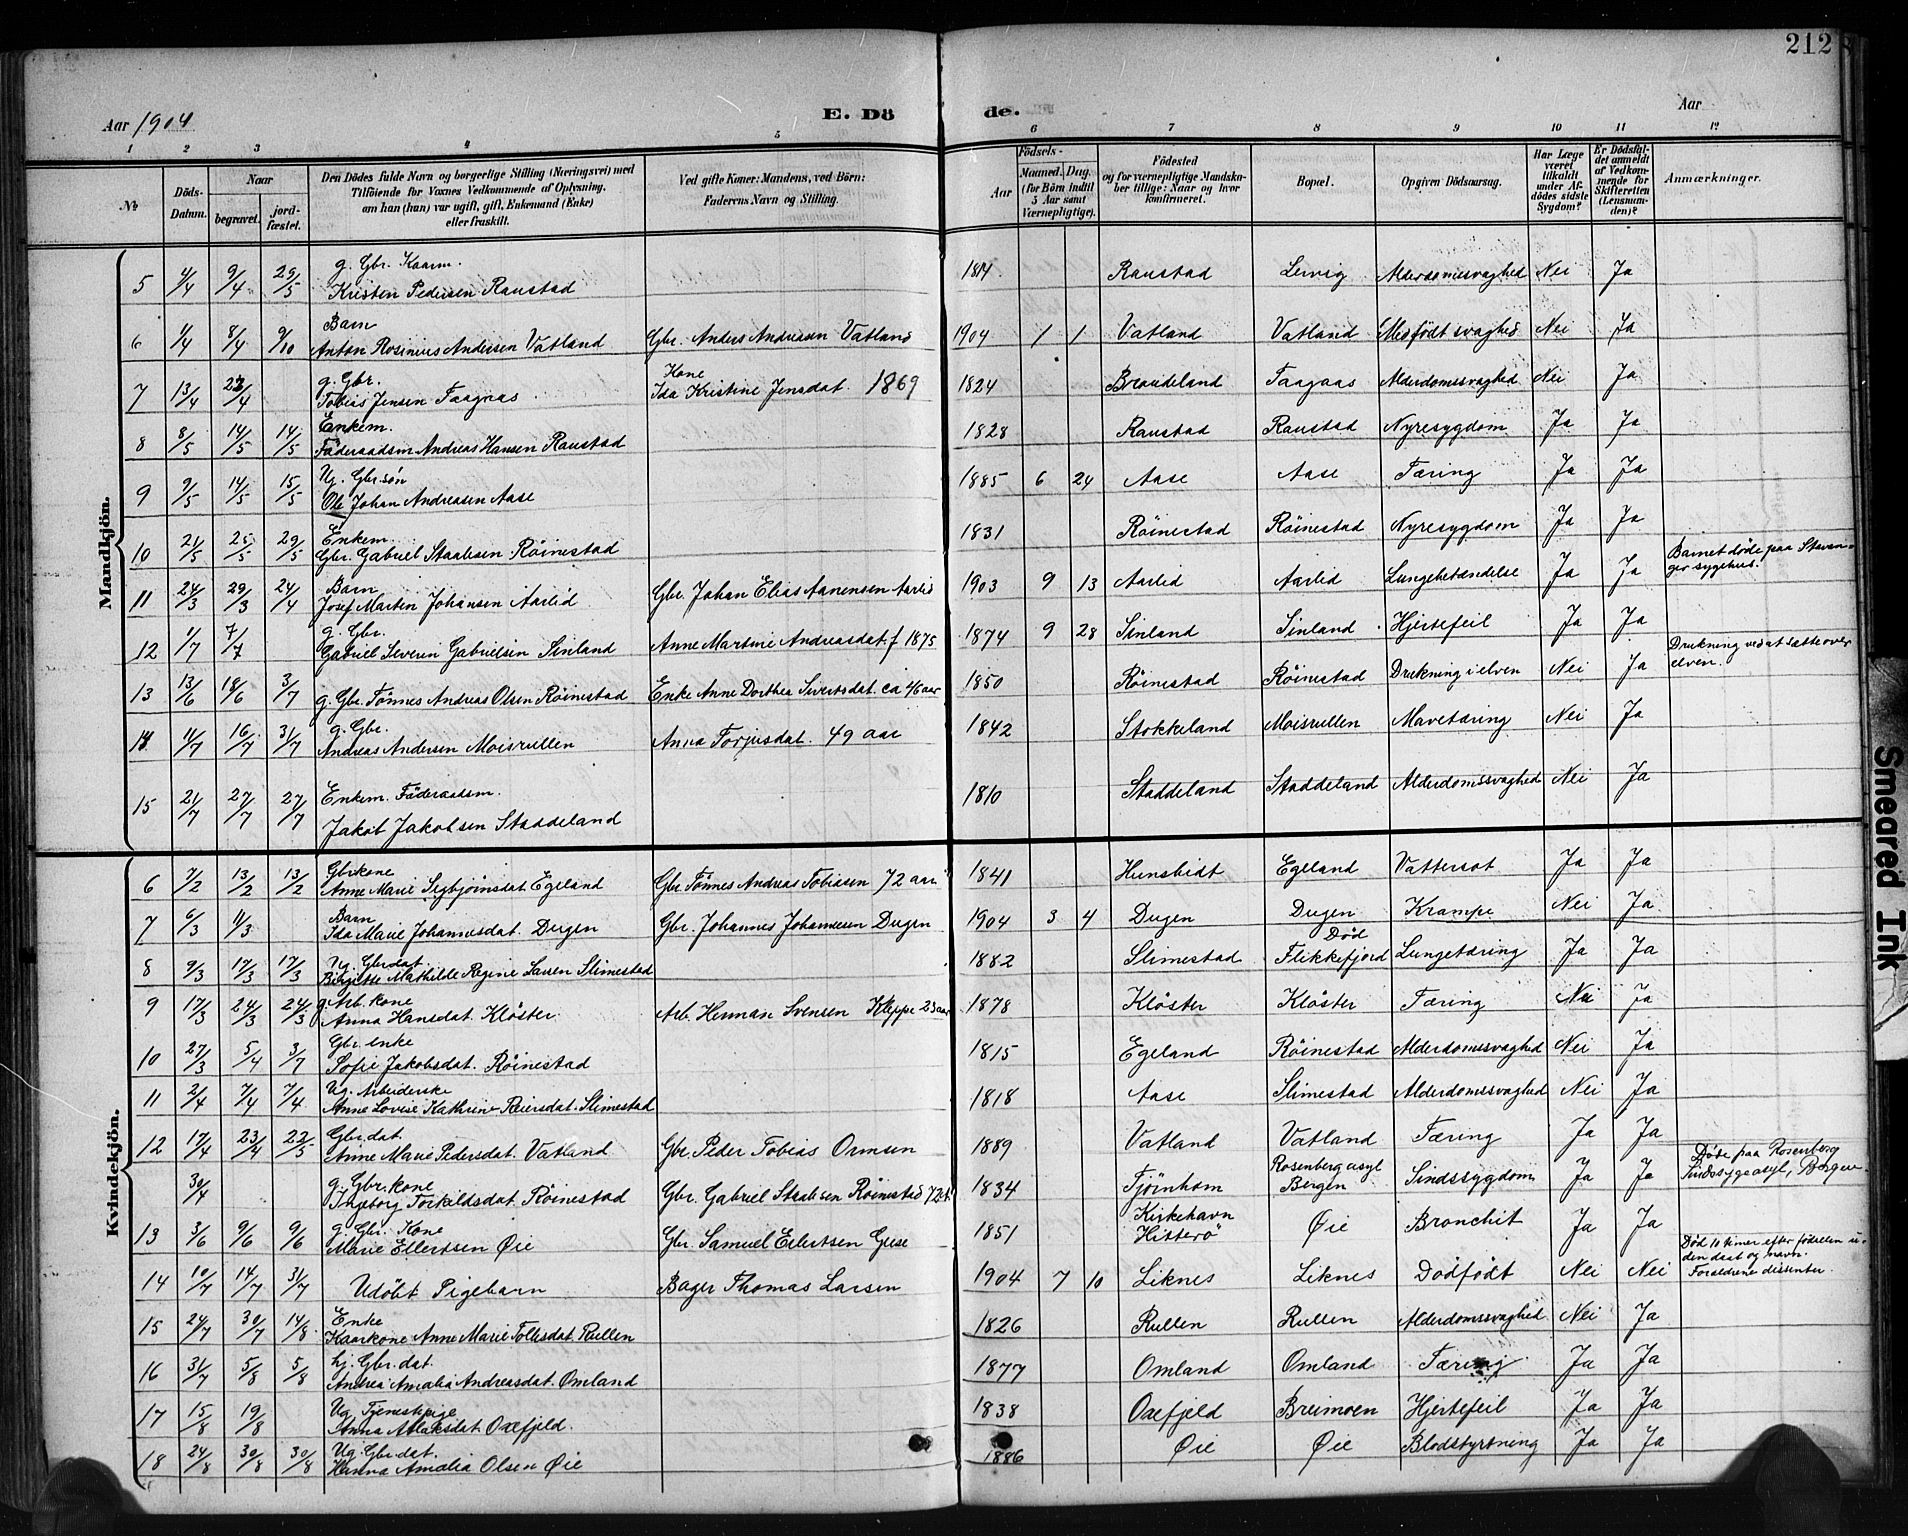 212
Aar 1904
E. Dö de.
Aar
1 2 3 4 5 6 7 8 9 10 11 12
№
Döds-Datum.
Naar
begravet.
jord-fæstet.
Den Dödes fulde Navn og borgerlige Stilling (Næringsvei) med
Tilföiende for Voxnes Vedkommende af Oplysning,
om han (hun) var ugift, gift, Enkemand (Enke)
eller fraskilt.
Ved gifte Koner: Mandens, ved Börn:
Faderens Navn og Stilling.
Födsels-
Aar
Maaned. Dag.
(for Börn indtil
5 Aar samt
Værnepligtige).
Födested
og for værnepligtige Mandskaber tillige: Naar og hvor
konfirmeret.
Bopæl.
Opgiven Dödsaarsag.
Har Læge
været
tilkaldt
under Afdödes sidste
Sygdom?
Er Dödsfaldet anmeldt
af Vedkommende for
Skifteretten
(Lensmanden)?
Anmærkninger.
Mandkjön.
5 4/4 9/4 29/5 g. Gbr. Kaarm. Kristen Pedersen Raustad 1814 Raustad Lervig Alderdomssvaghed Nei Ja
6 1/4 8/4 9/10 Barn Anton Rosinius Andersen Vatland Gbr. Anders Andreasen Vatland 1904 1 1 Vatland Vatland Medfödt svaghed Nei Ja
7 13/4 23/4 g. Gbr. Tobias Jensen Faagaas Kone Ida Kristine Jensdat. 1869 1824 Brandeland Faagaas Alderdomssvaghed Nei Ja
8 8/5 14/5 14/5 Enkem. Föderaadsm Andreas Hansen Raustad 1828 Raustad Raustad Nyresygdom Ja Ja
9 9/5 14/5 15/5 Ug. Gbr.søn Ole Johan Andreasen Aase 1885 6 24 Aase Aase Tæring Ja Ja
10 21/5 25/5 29/5 Enkem. Gbr. Gabriel Staalesen Röinestad 1831 Röinestad Röinestad Nyresygdom Ja Ja
11 24/3 29/3 24/4 Barn Josef Martin Johansen Aarlid Gbr. Johan Elias Aanensen Aarlid 1903 9 13 Aarlid Aarlid Lungebetændelse Ja Ja Barnet døde paa Stavanger sygehus.
12 1/7 7/7 g. Gbr. Gabriel Severin Gabrielsen Sinland Anne Martine Andreasdat. f 1875 1874 9 28 Sinland Sinland Hjertefeil Ja Ja
13 13/6 18/6 3/7 g. Gbr. Tönnes Andreas Olsen Röinestad Enke Anne Dorthea Sivertsdat. ca 46 aar 1850 Röinestad Röinestad Drukning i elven Nei Ja Drukning ved at sætte over elven.
14 11/7 16/7 31/7 g. Gbr. Andreas Andersen Moisrullen Anna Torjusdat. 49 aar 1842 Stokkeland Moisrullen Mavetæring Nei Ja
15 21/7 27/7 27/7 Enkem. Föderaadsm. Jakob Jakobsen Staddeland 1810 Staddeland Staddeland Alderdomssvaghed Nei Ja
Kvindekjön.
6 7/2 13/2 13/2 Gbrkone Anne Marie Sigbjörnsdat Egeland Gbr Tönnes Andreas Tobiasen 72 aar 1841 Hunsbidt Egeland Vattersot Ja Ja
7 6/3 11/3 Barn Ida Marie Johannesdat. Dugen Gbr. Johannes Johannesen Dugen 1904 3 4 Dugen Dugen Krampe Nei Ja
8 9/3 17/3 17/3 Ug. Gbrdat. Birgitte Mathilde Regine Slimestad 1882 Slimestad Död Flikkefjord Lungetæring Ja Ja
9 17/3 24/3 24/3 g. Arb. kone Anna Hansdat. Klöster Arb. Herman Svensen Kleppe 23 aar 1878 Klöster Klöster Tæring Nei Ja
10 27/3 5/4 3/7 Gbr. enke Sofie Jakobsdat. Röinestad 1815 Egeland Röinestad Alderdomssvaghed Nei Ja
11 2/4 7/4 7/4 Ug. Arbeiderske Anne Lovise Kathrine Reiersdat. Slimestad 1818 Aase Slimestad Alderdomssvaghed Nei Ja
12 17/4 23/4 22/5 Gbr. dat. Anne Marie Pedersdat. Vatland Gbr. Peder Tobias Ormsen 1889 Vatland Vatland Tæring Ja Ja
30/4 g. Gbr. kone Ingeborg Torkildsdat. Röinestad Gbr. Gabriel Staalesen Röinestad 1834 Fjörnhom Rosenberg asyl Bergen Sindssygdom Ja Ja Døde paa Rosenberg Sindssygeasyl, Bergen
13 3/6 9/6 9/6 g. Gbr. Kone Marie Ellertsen Øie Gbr. Samuel Eilertsen 1851 Kirkehavn Hitterö Øie Bronchit Ja Ja
14 10/7 14/7 31/7 Udöbt Pigebarn Bager Thomas Larsen 1904 7 10 Liknes Liknes Dödfödt Nei Nei Död 10 timer efter födselen uden daab og navn. Forældrene dissenter.
15 24/7 30/7 14/8 Enke Kaarkone Anne Marie Tollisdat. Rullen 1826 Rullen Rullen Alderdomssvaghed Nei Ja
16 31/7 5/8 5/8 Gbr. dat. Andrea Amalia Andreasdat. Omland 1877 Omland Omland Tæring Ja Ja
17 15/8 19/8 Ug. Tjenestpige Anna Atlaksdat Oxefjeld. 1838 Oxefjeld Breimoen Hjertefeil Ja Ja
18 24/8 30/8 30/8 Ug. Gbr. dat. Hanna Amalia Olsen Øie 1886 Øie Øie Blodstyrtning Ja Ja
Smeared Ink